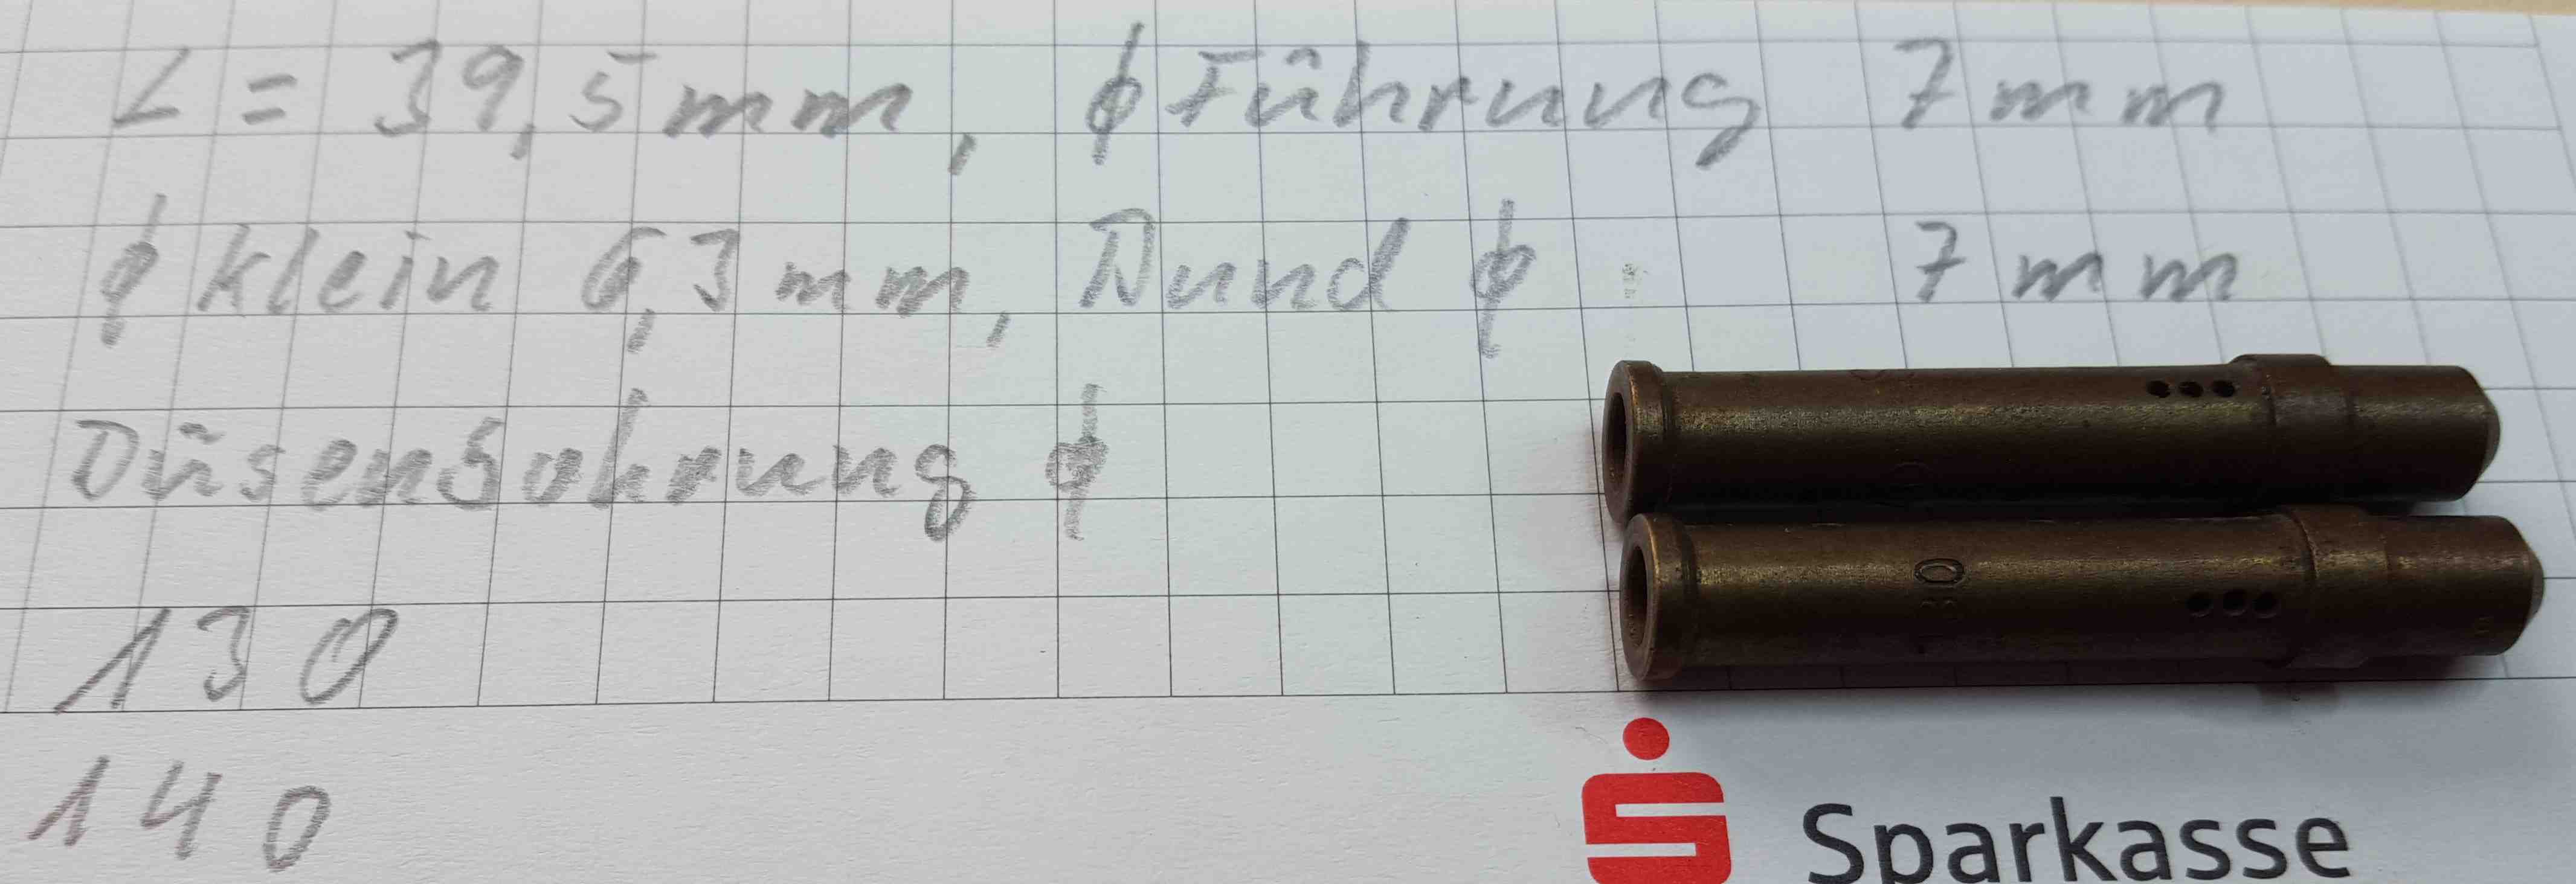 L = 39,5 mm, ϕ Führung 7 mm
ϕ klein 6,3 mm, Bund ϕ 7 mm
Düsenbohrung ϕ
130
140
130
Sparkasse